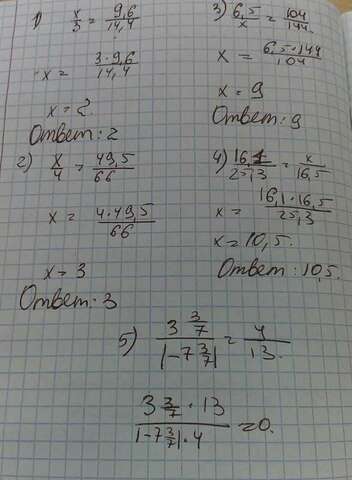 1) x/3 = 9,6/14,4
x = 3·9,6/14,4
x = 2
Ответ: 2
2) x/4 = 49,5/66
x = 4·49,5/66
x = 3
Ответ: 3
3) 6,5/x = 104/144
x = 6,5·144/104
x = 9
Ответ: 9
4) 16,1/25,3 = x/16,5
x = 16,1·16,5/25,3
x = 10,5.
Ответ: 10,5.
5) 3 3/7 / |-7 3/7| = y/13.
3 3/7 · 13 / |-7 3/7| · y = 0.